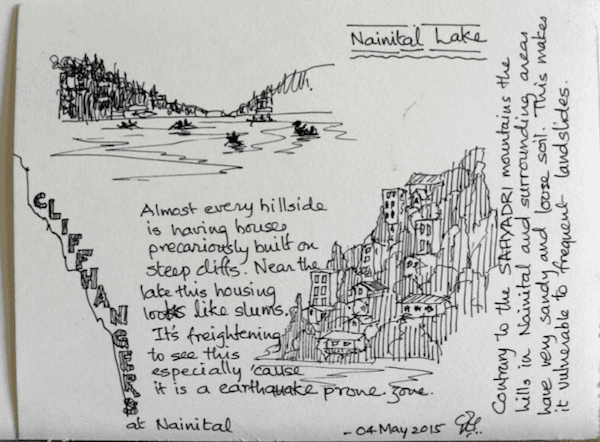 Nainital Lake
CLIFFHANGERS
at Nainital
Almost every hillside
is having houses
precariously built on
steep cliffs. Near the
lake this housing
looks like slums.
It's freightening
to see this
especially 'cause
it is a earthquake prone zone.
Contrary to the SAHYADRI mountains the
hills in Nainital and surrounding areas
have very sandy and loose soil. This makes
it vulnerable to frequent landslides.
- 04 May 2015